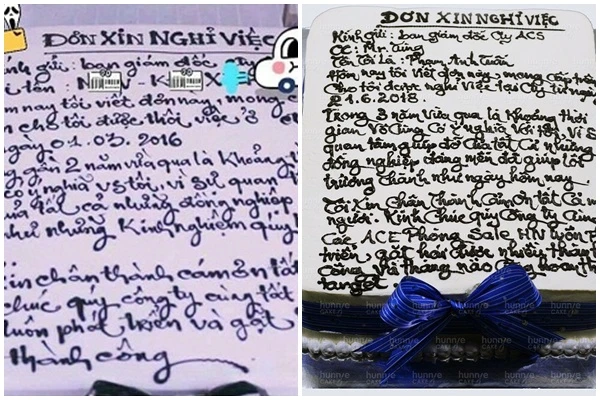 ĐƠN XIN NGHỈ VIỆC
ính gửi: ban giám đốc
tên : N
nay tôi viết đơn này, mong
cho tôi được thôi việc ở
ngày 01.03.2016
gần 2 năm vừa qua là Khoảng
nghĩa vs tôi, vì sự qua
tất cả những đồng nghiệp
như những Kinh nghiệm quý
in chân thành cám ơn tất
chúc quý công ty cùng tất
uôn phát triển và gặt
thành công
ĐƠN XIN NGHỈ VIỆC
Kính gửi: ban giám đốc Cty ACS
CC: Mr. Tùng
Tên Tôi Là : Phạm Anh Tuấn
Hôm nay tôi viết đơn này mong Cấp trên
Cho tôi được nghỉ việc tại Cty từ ngày
21.6.2018.
Trong 3 năm vừa qua là Khoảng thời
gian Vô Cùng Có ý nghĩa Với tôi, Vì sự
quan tâm giúp đỡ của tất Cả những
đồng nghiệp đáng mến đã giúp tôi
trưởng thành như ngày hôm nay
Tôi Xin Chân Thành Cám Ơn tất Cả mọi
người. Kính Chúc quý Công ty Cùng
Các ACE Phòng Sale HN luôn
triển, gặt hái được nhiều thành
Công Và tháng nào Cũng hoàn thành
target.
hunnie hunnie hunnie
CAKE CAKE CAKE